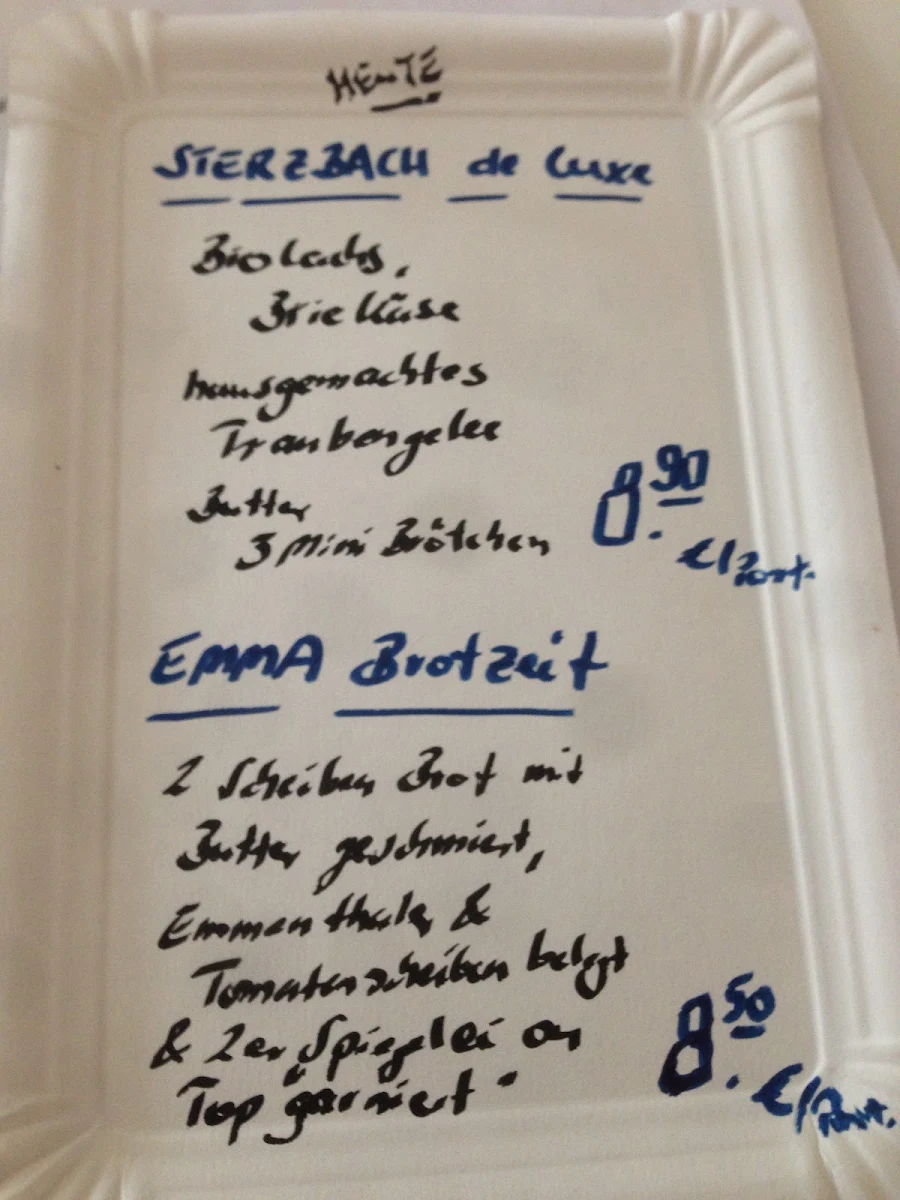 HEUTE
STERZBACH de Luxe
Bio Lachs,
Brie Käse
hausgemachtes
Traubengelee
Butter
3 Mini Brötchen
8.90
€/Port.
EMMA Brotzeit
2 Scheiben Brot mit
Butter geschmiert,
Emmenthaler &
Tomatenscheiben belegt
& 2er Spiegelei on
Top "garniert"
8.50
€/Port.